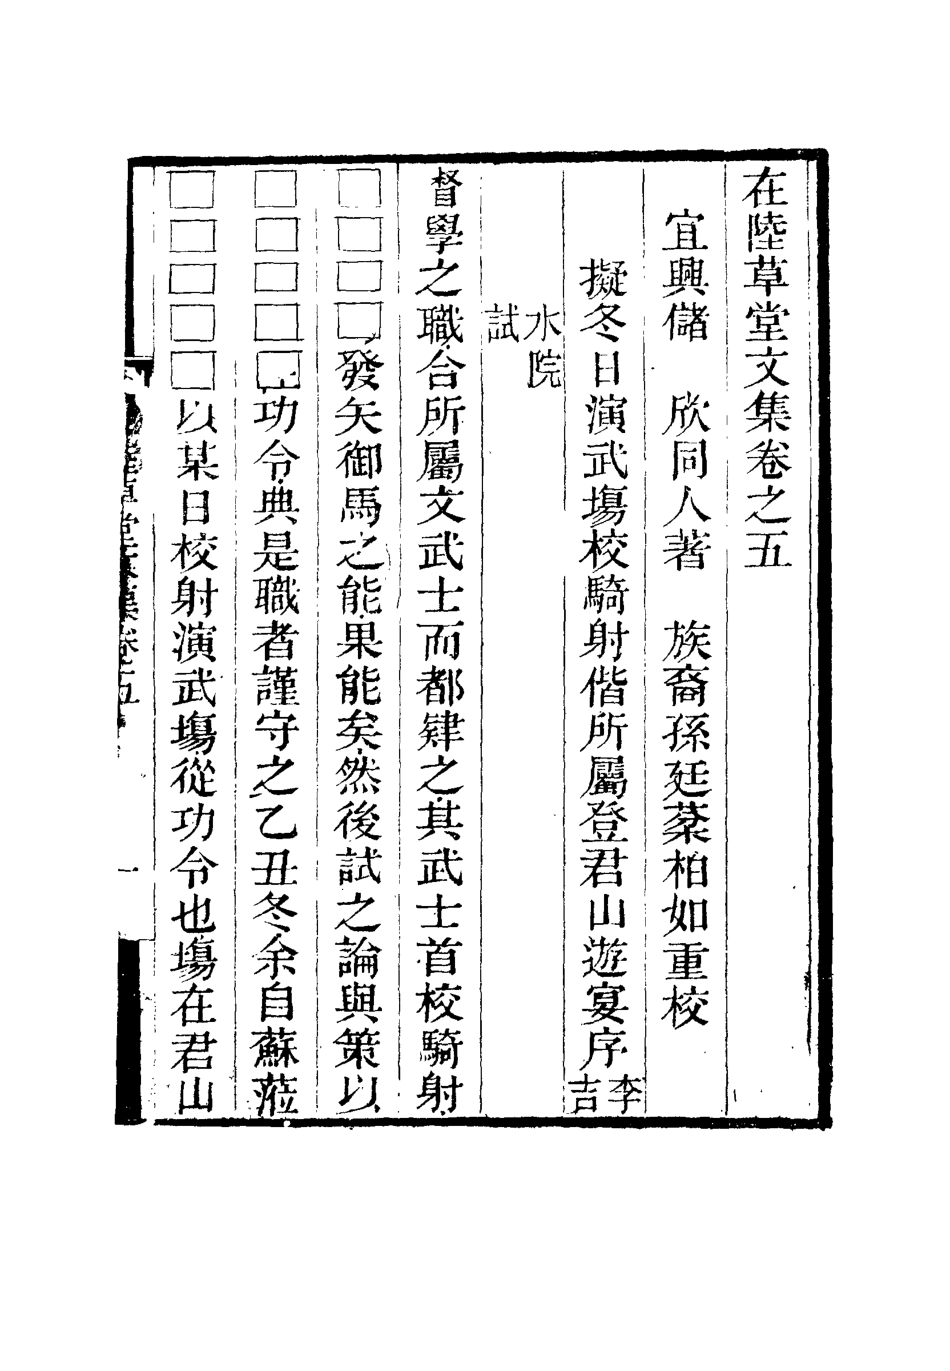 在陸草堂文集卷之五
宜興儲 欣同人著 族裔孫廷棻柏如重校
擬冬日演武塲校騎射偕所屬登君山遊宴序李吉
水院試
督學之職合所屬文武士而都肄之其武士首校騎射
□□□□發矢御馬之能果能矣然後試之論與策以
□□□□□功令典是職者謹守之乙丑冬余自蘇蒞
□□□□□以某日校射演武塲從功令也塲在君山
在陸草堂文集卷之五
一